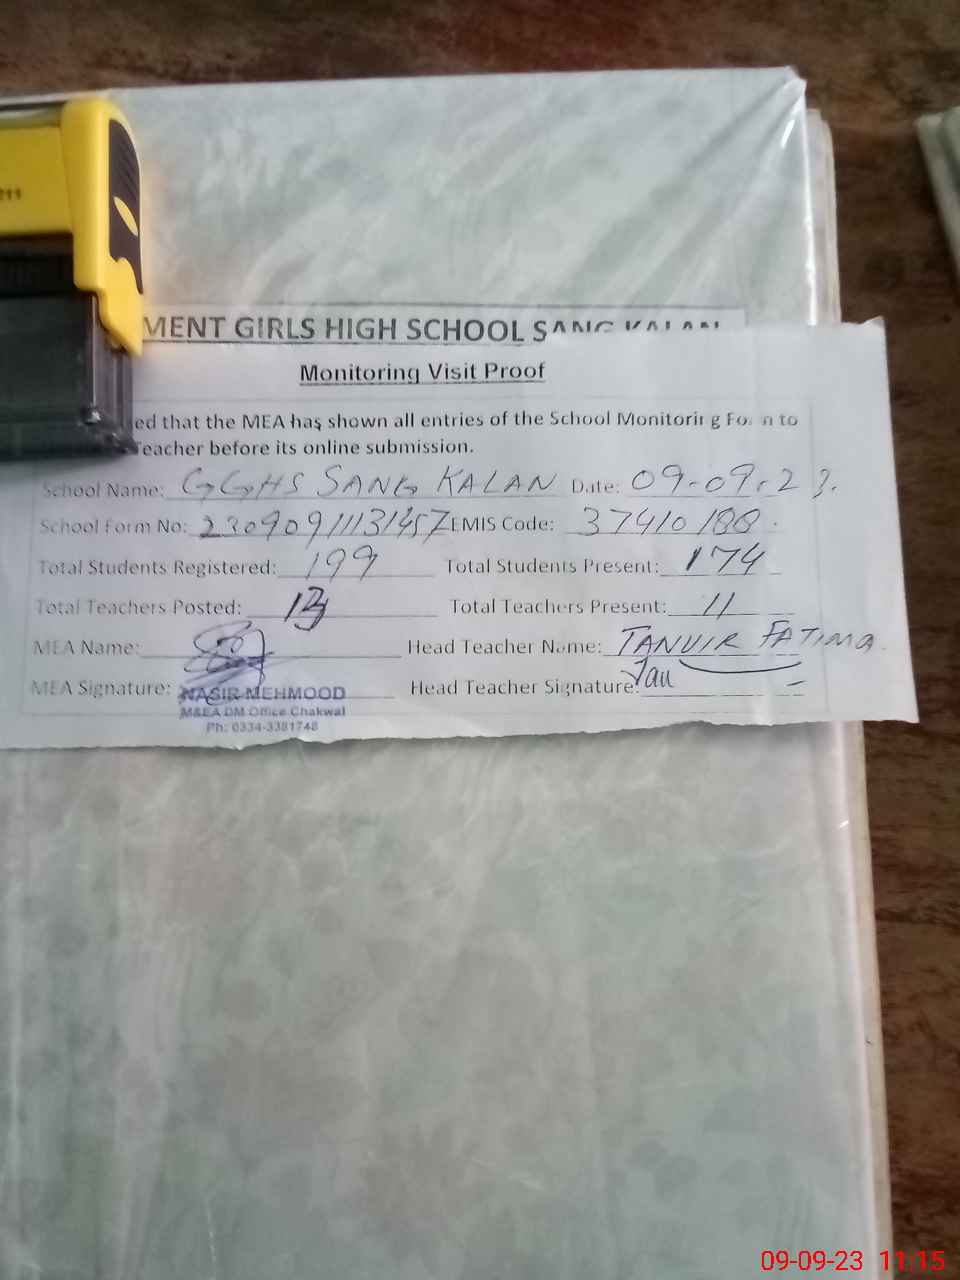 211
MENT GIRLS HIGH SCHOOL SANG KALAN
Monitoring Visit Proof
ed that the MEA has shown all entries of the School Monitoring Form to
Teacher before its online submission.
School Name: GGHS SANG KALAN Date: 09-09-23.
School Form No: EMIS Code: 37410188
Total Students Registered: 199 Total Students Present: 174
Total Teachers Posted: Total Teachers Present: 11
MEA Name: Head Teacher Name: TANVIR FATIMA
MEA Signature: NASIR MEHMOOD Head Teacher Signature:
M&EA DM Office Chakwal
Ph: 0334-3381748
09-09-23 11:15